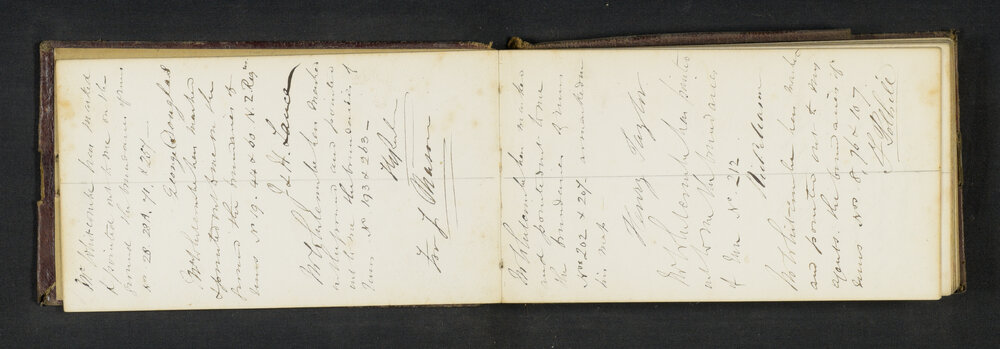 Mr Whitcombe has marked
& pointed out to me on the
ground the boundaries of mines
No 28 29A, 71, & 257 —
George Douglas
Mr Whitcombe has marked
& pointed out to me on the
ground the boundaries of
mines No 19. 44 & 60 N Z Reg
J. H. Lance
Mr Whitcombe has marked
on the ground and pointed
out to me the boundaries of
mines No 193 & 263 —
For J Mason
Mr Whitcombe has marked
and pointed out to me
the boundaries of mines
Nos 202 & 207 as marked on
his map —
Henry Taylor
Mr Whitcombe has pointed
out to me the boundaries
of No 212
Mason
Mr Whitcombe has marked
and pointed out to my
agents the boundaries of
mines Nos 8, 76 & 107